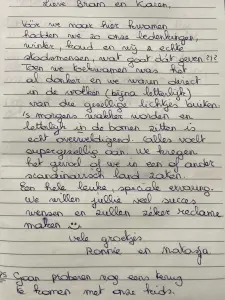 Lieve Bram en Karen,
Vóór we naar hier kwamen
hadden we zo onze bedenkingen;
winter, koud en wij 2 echte
stadsmensen, wat gaat dat geven?!?
Toen we toekwamen was het
al donker en we waren direct
in de wolken (bijna letterlijk)
van die gezellige lichtjes buiten.
's morgens wakker worden en
letterlijk in de bomen zitten is
echt overweldigend. Alles voelt
supergezellig aan. We kregen
het gevoel of we in een of ander
scandinavisch land zaten.
Een hele leuke, speciale ervaring.
We willen jullie veel succes
wensen en zullen zeker reclame
maken
Vele groetjes
Ronnie en Natasja
PS Gaan proberen nog eens terug
te komen met onze kids.